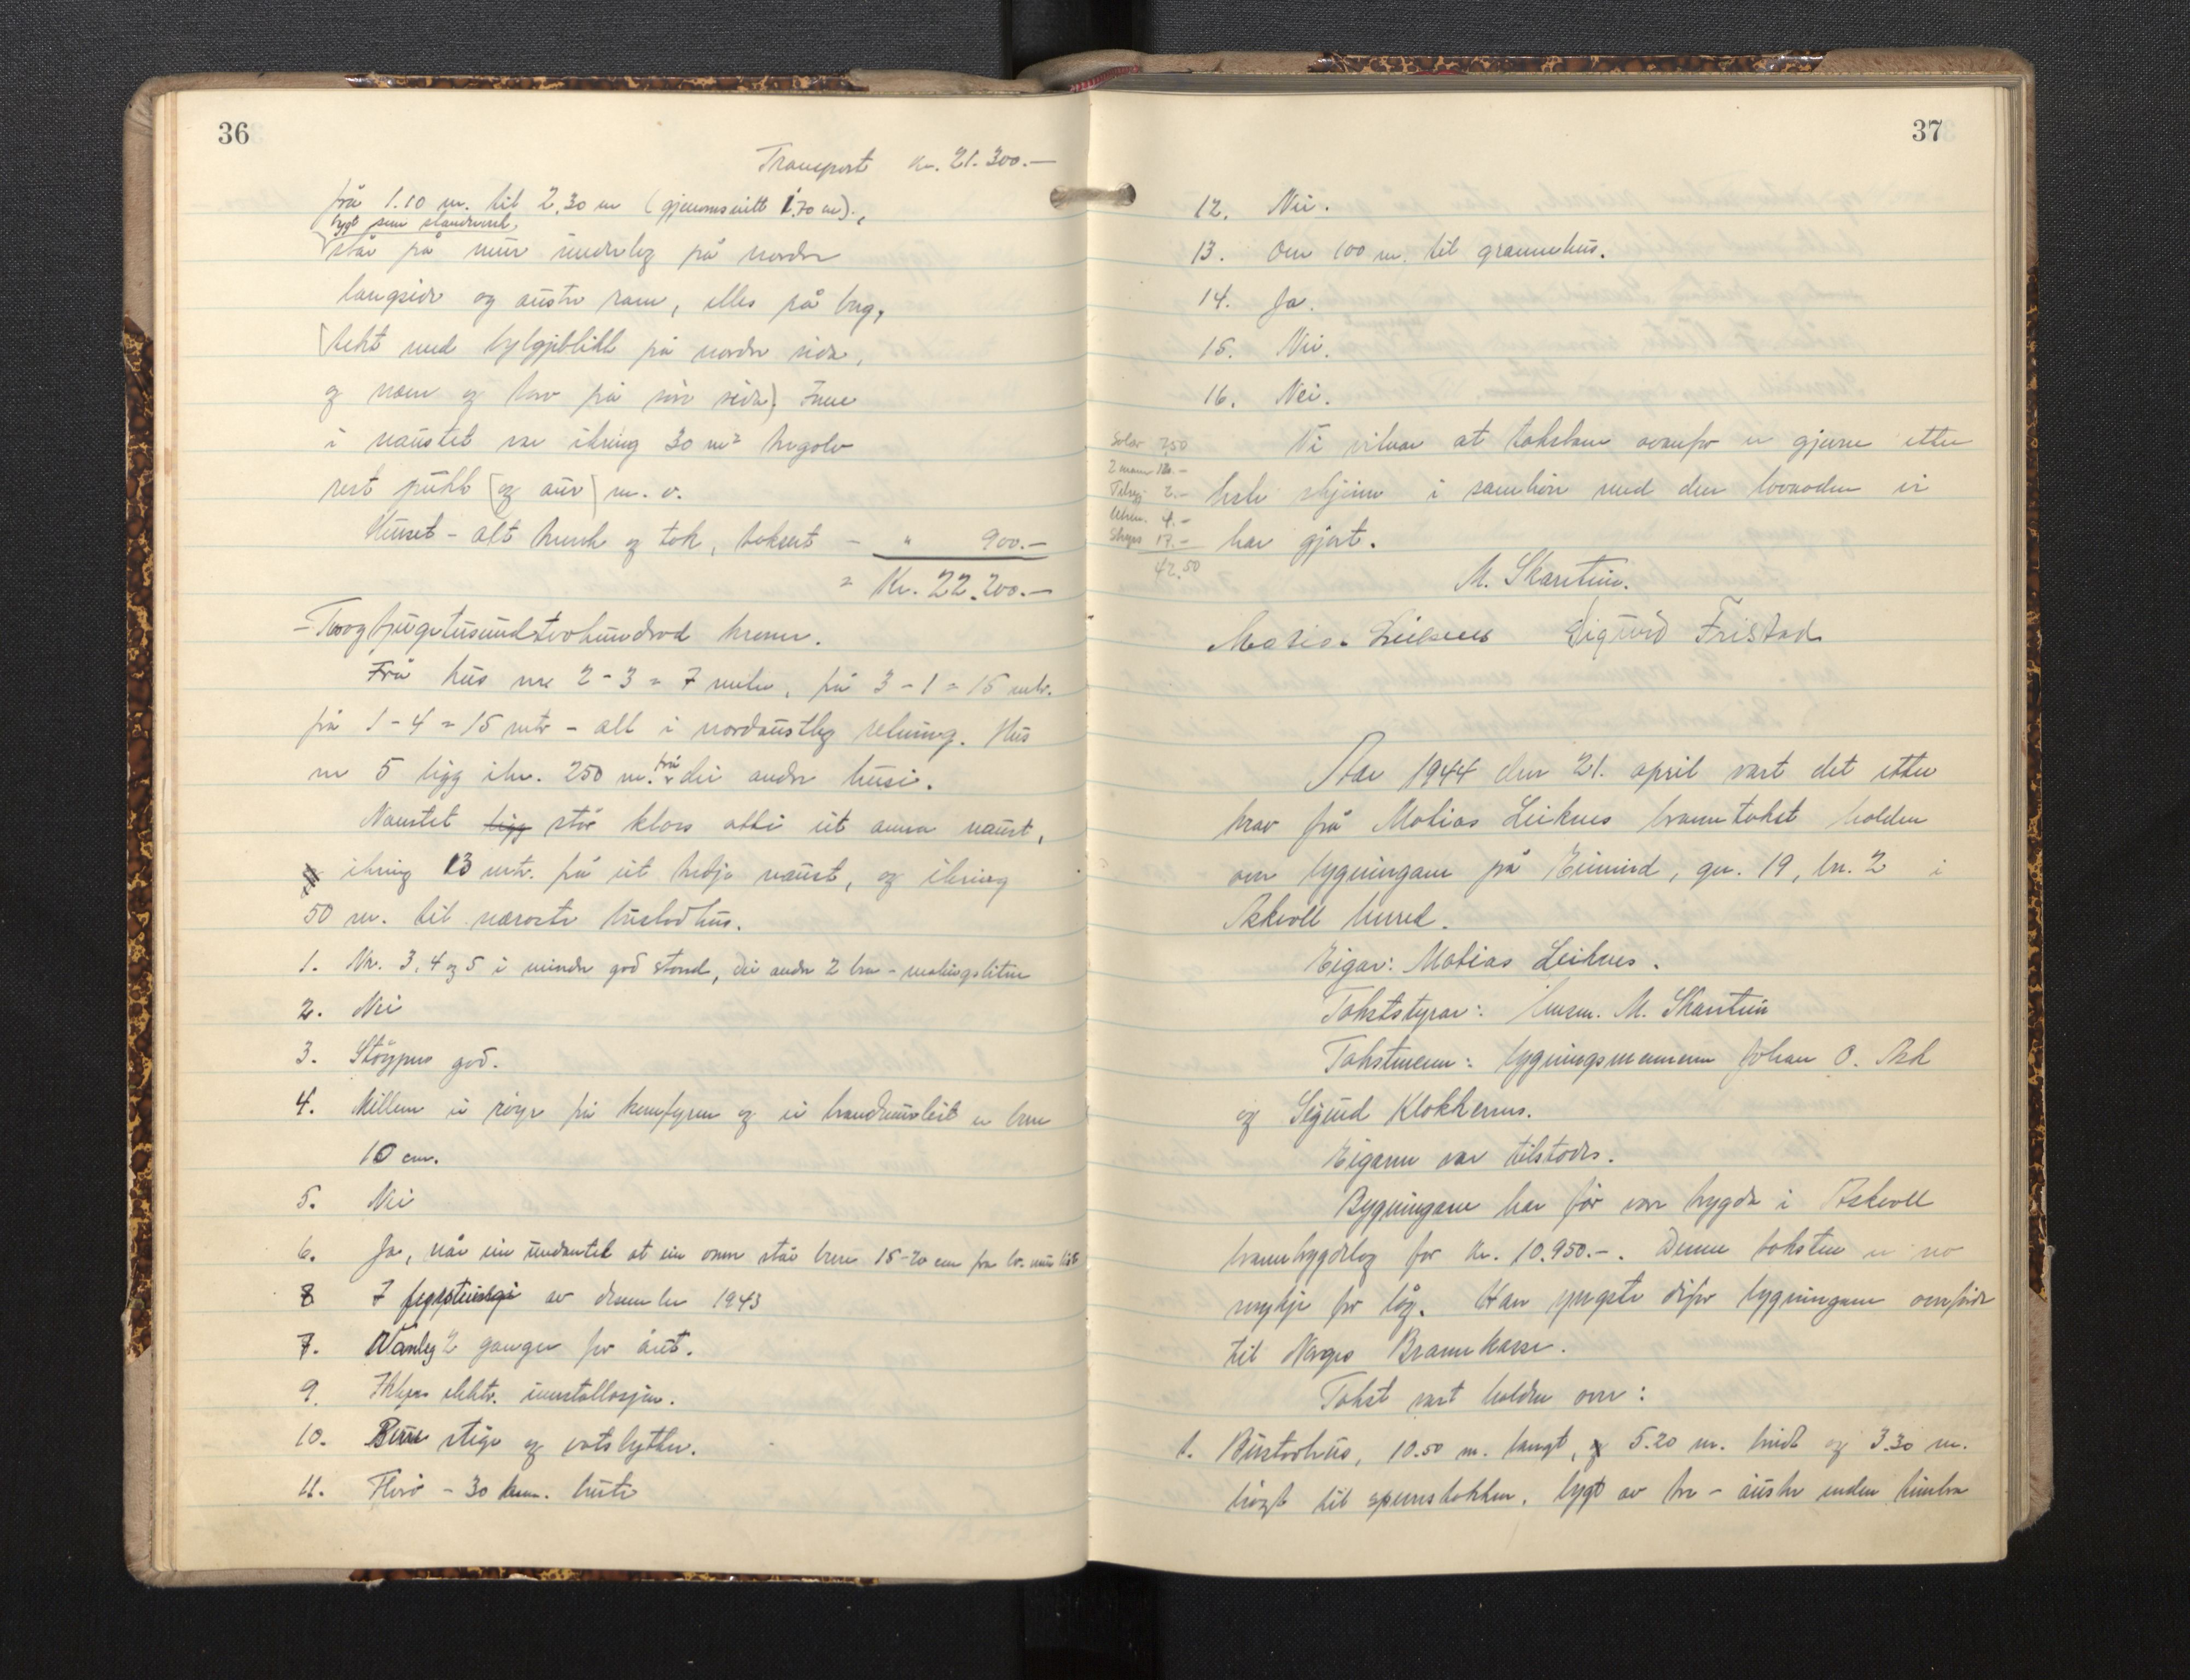 36
Transport Kr. 21.300.—
frå 1.10 m. til 2,30 m (gjenomsnitt 1,70 m).,
bygt som standverk,
står på mur nordleg på nordre
langside og austre ram, elles på brug,
tekt med bylgjeblikk på nordre side,
og næver og torv på søre side) Inne
i naustet var ikring 30 m² tregolv
rest pukk (og aur) m. v.
Huset - alt krunk og tak, taksert - " 900.—
= Kr. 22.200.—
- Toogtjugetusundtvohundrad kroner.
Frå hus nr 2 - 3 = 7 meter, frå 3 - 1 = 15 mtr.
frå 1 - 4 = 15 mtr - alt i nordaustleg retning. Hus
nr 5 ligg ikr. 250 m. frå dei andre husi.
Naustet ligg står kloss attåt eit anna naust,
og ikring 13 mtr. frå eit tredje naust, og ikring
50 m. til næraste bustadhus.
1. Nr. 3, 4 og 5 i mindre god stand, dei andre 2 bra - malingslitne
2. Nei
3. Støypus god.
4. Millom ei røyr frå komfyren og ei brandmurleit er bare
10 cm.
5. Nei
6. Ja, når ein undantek at ein omn står bare 15-20 cm fra br. mur
8 I av desember 1943
7. Vanleg 2 gonger for året.
9. Ikkje elektr. innstallasjon.
10. Berre stige og vatsbytter.
11. Florø - 30 km. borte
37
12. Nei.
13. Om 100 m. til grannehus.
14. Ja.
15. Nei.
16. Nei.
Vi vitnar at taksten ovanfor er gjerne etter
beste skjønn i samhøve med den lovnaden vi
har gjort.
2,50
2 mann 12.-
2.-
4.-
Skyss 17.-
42.50
M. Skartun.
Matias Leiknes Sigurd Fristad
Aar 1944 den 21. april vart det etter
krav frå Matias Leiknes branntakst halden
over bygningane på Eimind, gn. 19, bn. 2 i
Askvoll herred.
Eigar: Matias Leiknes.
Takststyrar: lensm. M. Skartun
Takstmenn: bygningsmennene Johan O. Ask
og Sigurd Klokkernes.
Eigaren var tilstades.
Bygningane har før vore trygda i Askvoll
branntrygdelag for kr. 10.950.-. Denne taksten er no
mykje for låg. Han yngste difor bygningane overførde
til Norges Brannkasse.
Takst vart halden over:
1. Bustadhus, 10.50 m. langt, og 5.20 m. breidt og 3.30 m.
høgt til sperrstokken, bygt av tre - austre enden timbra